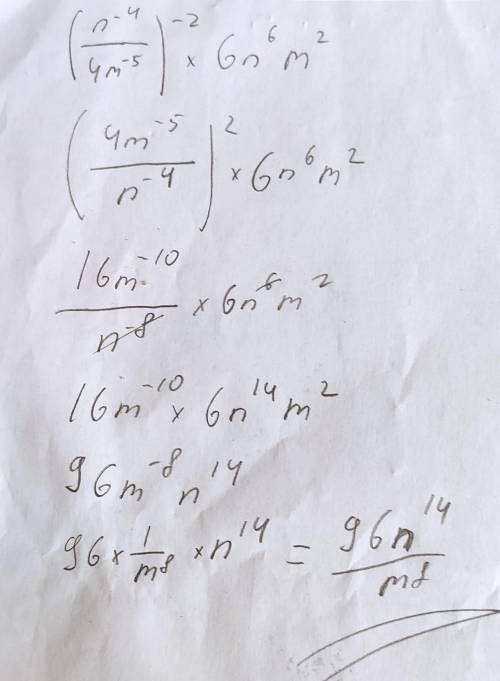 (n⁻⁴/4m⁻⁵)⁻² × 6n⁶m²
(4m⁻⁵/n⁻⁴)² × 6n⁶m²
16m⁻¹⁰/n⁻⁸ × 6n⁶m²
16m⁻¹⁰ × 6n¹⁴m²
96m⁻⁸n¹⁴
96 × 1/m⁸ × n¹⁴ = 96n¹⁴/m⁸